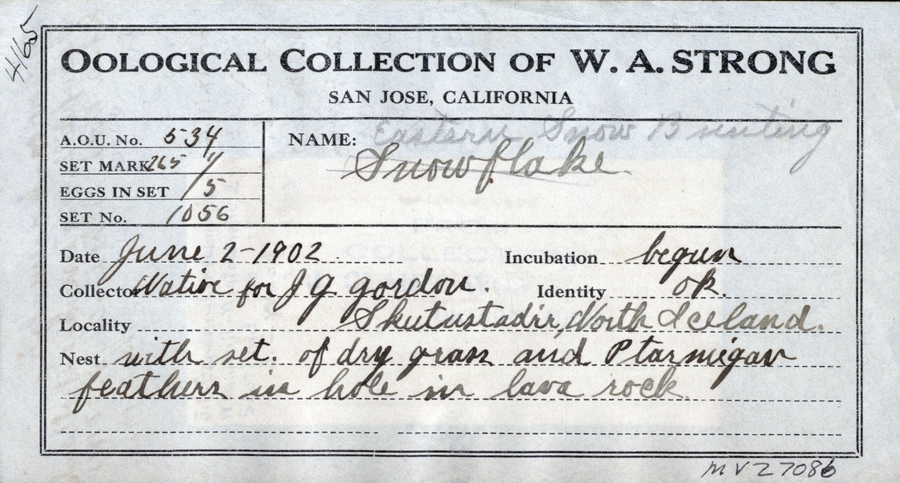 465
OOLOGICAL COLLECTION OF W. A. STRONG
SAN JOSE, CALIFORNIA
A.O.U. No. 534
SET MARK 265/4
EGGS IN SET 5
SET No. 1056
NAME: Eastern Snow Bunting
Snowflake
Date June 2-1902 Incubation begun
Collector Native for J G Gordon. Identity ok.
Locality Skutustadir, North Iceland.
Nest with set. of dry grass and Ptarmigan
feathers in hole in lava rock
MVZ 7086